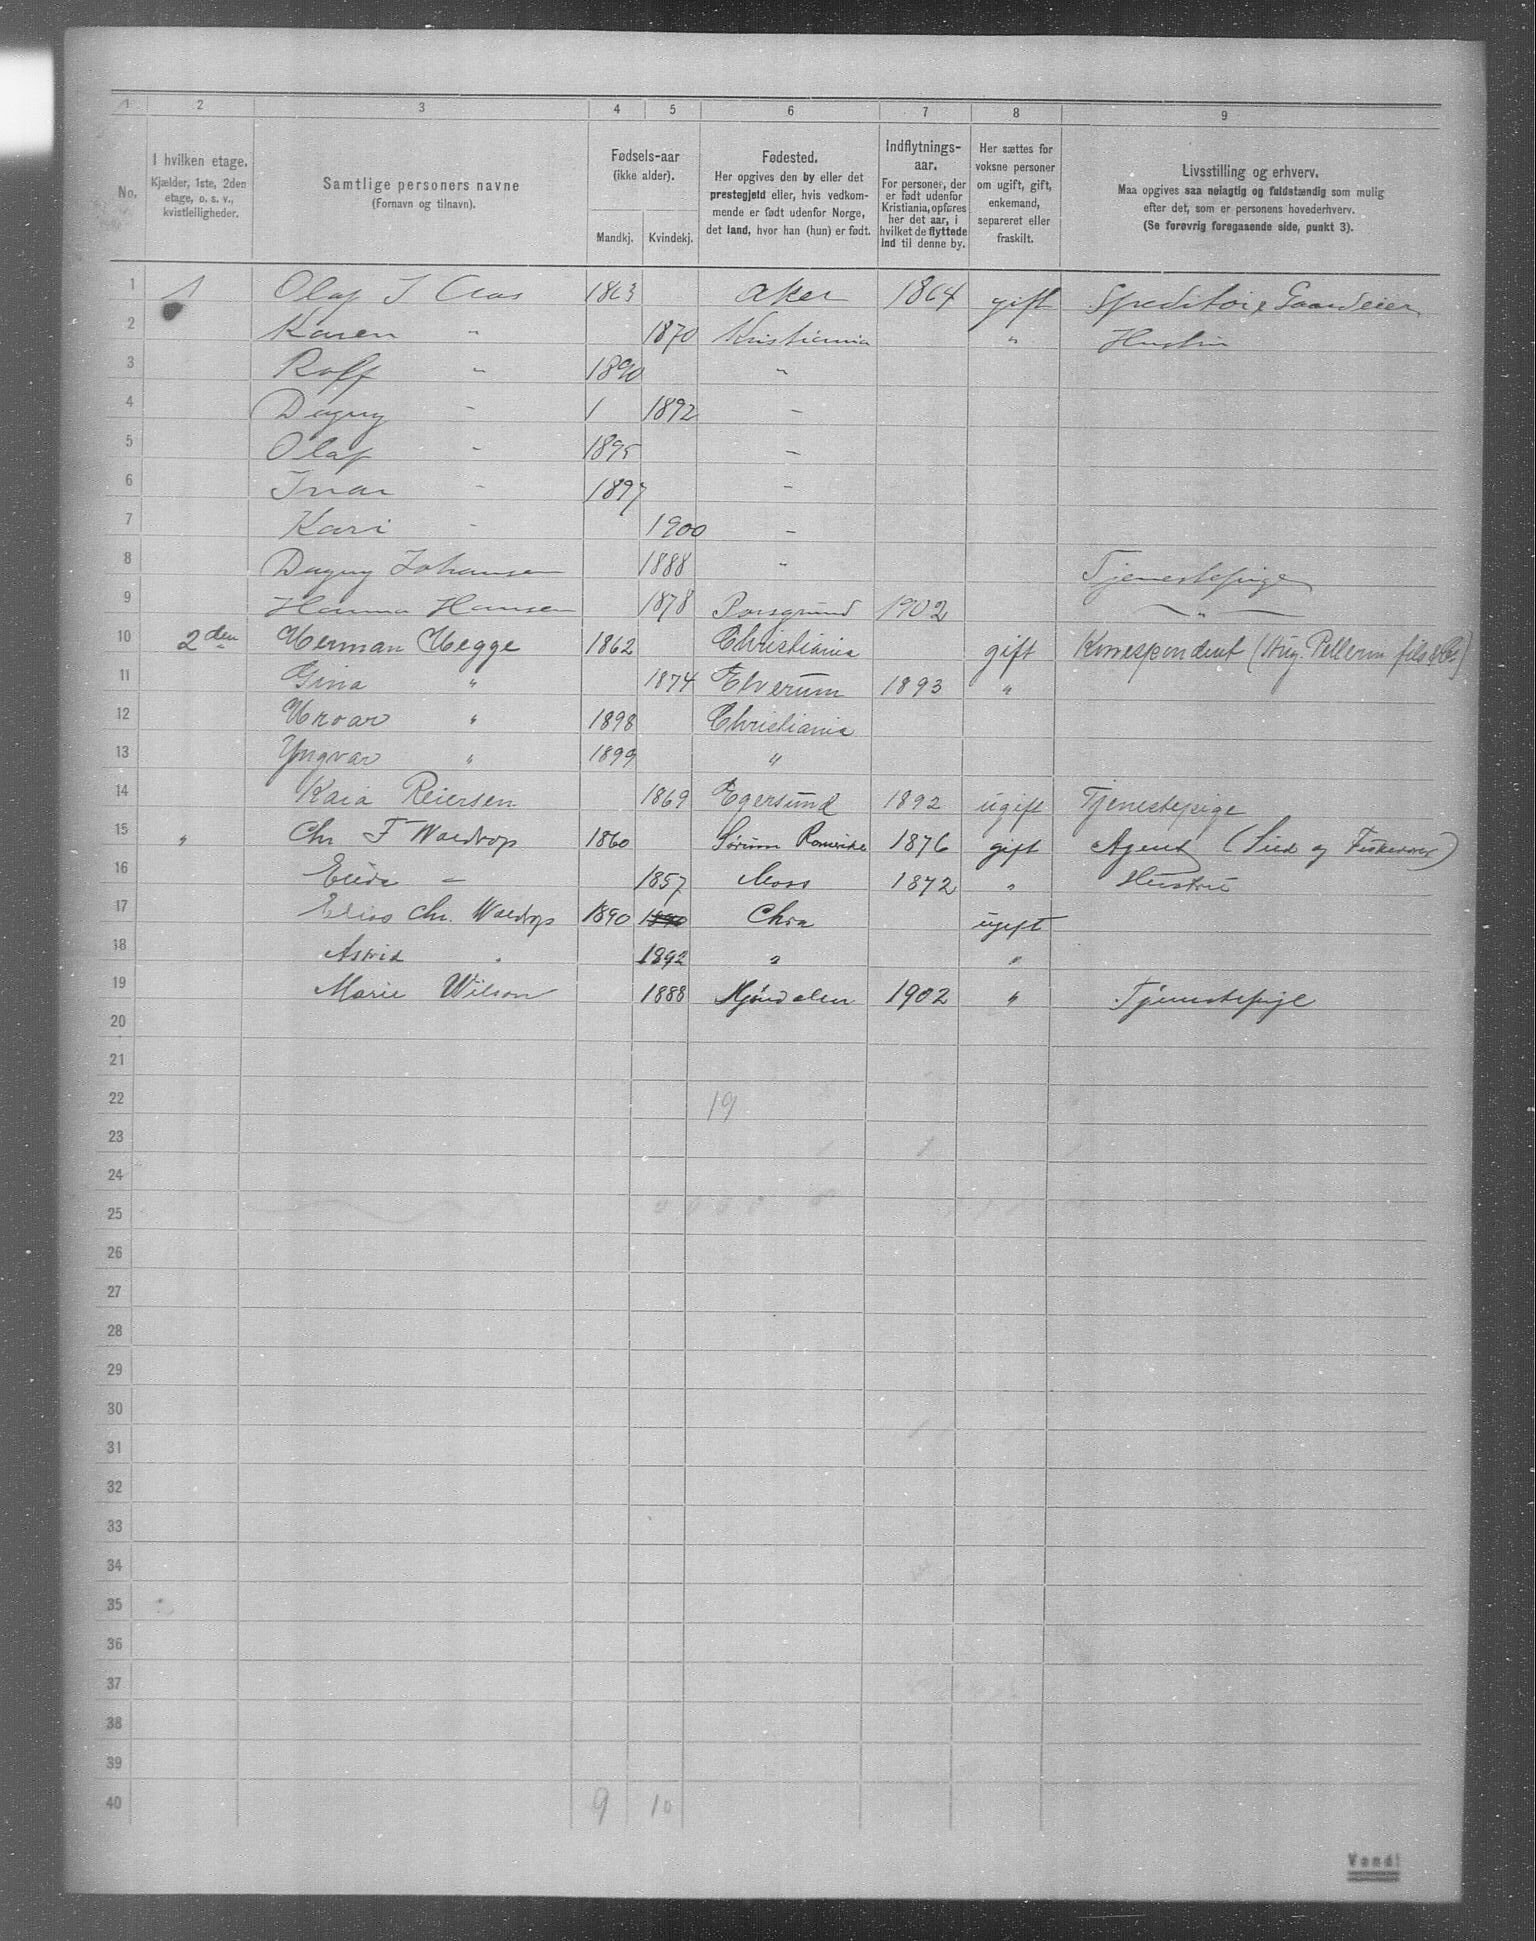 1 2 3 4 5 6 7 8 9
No.
I hvilken etage.
Kjælder, 1ste, 2den
etage, o. s. v.,
kvistleiligheder.
Samtlige personers navne
(Fornavn og tilnavn).
Fødsels-aar
(ikke alder).
Mandkj. Kvindekj.
Fødested.
Her opgives den by eller det
prestegjeld eller, hvis vedkom-
mende er født udenfor Norge,
det land, hvor han (hun) er født.
Indflytnings-
aar.
For personer, der
er født udenfor
Kristiania, opføres
her det aar, i
hvilket de flyttede
ind til denne by.
Her sættes for
voksne personer
om ugift, gift,
enkemand,
separeret eller
fraskilt.
Livsstilling og erhverv.
Maa opgives saa nøiagtig og fuldstændig som mulig
efter det, som er personens hovederhverv.
(Se forøvrig foregaaende side, punkt 3).
1 1 Olaf J 1863 Aker 1864 gift Speditør & Gaardeier
2 Karen " 1870 Kristiania " Hustru
3 Rolf " 1890 "
4 Dagny - 1 1892 -
5 Olaf - 1895 -
6 Ivar - 1897 -
7 Kari - 1900 -
8 Dagny Johansen 1888 " Tjenestepige
9 Hanna Hansen 1878 Porsgrund 1902 "
10 2den Herman Hegge 1862 Christiania gift Korrespondent (Aug. Pellerin fils & Co)
11 Gina " 1874 Elverum 1893 "
12 Hroar " 1898 Christiania
13 Yngvar " 1899 "
14 Kaia Reiersen 1869 Egersund 1892 ugift Tjenestepige
15 " Chr F Waldrop 1860 Sørum Romerike 1876 gift Agent (Sild og Fiskevarer)
16 - 1857 Moss 1872 " Hustru
17 Elias Chr. Waldrop 1890 1890 Chra ugift
18 Astrid " 1892 " "
19 Marie Wilson 1888 Mjøndalen 1902 " Tjenestepige
20
21
22 19
23
24
25
26
27
28
29
30
31
32
33
34
35
36
37
38
39
40 9 10
Vend!